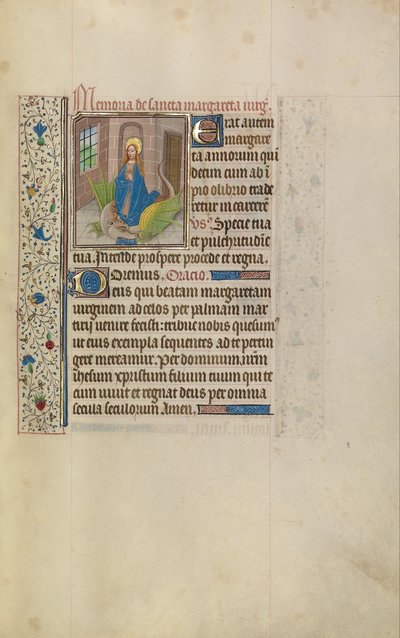 Memoria de sancta margareta virg.
Erat autem
margare
ta annorum qui
decim cum ab i
pio olibrio trade
retur in carcerem
Vs. Specie tua
et pulchritudine
tua, Intende prospere procede et regna,
Oremus. Oracio.
Deus qui beatam margaretam
virginem ad celos per palmam mar
tirij venire fecisti: tribue nobis quesum9
ut eius exempla sequentes ad te pertin
gere mereamur. Per dominum nrm
ihesum xpristum filium tuum qui te
cum vivit et regnat deus per omnia
secula seculorum Amen.